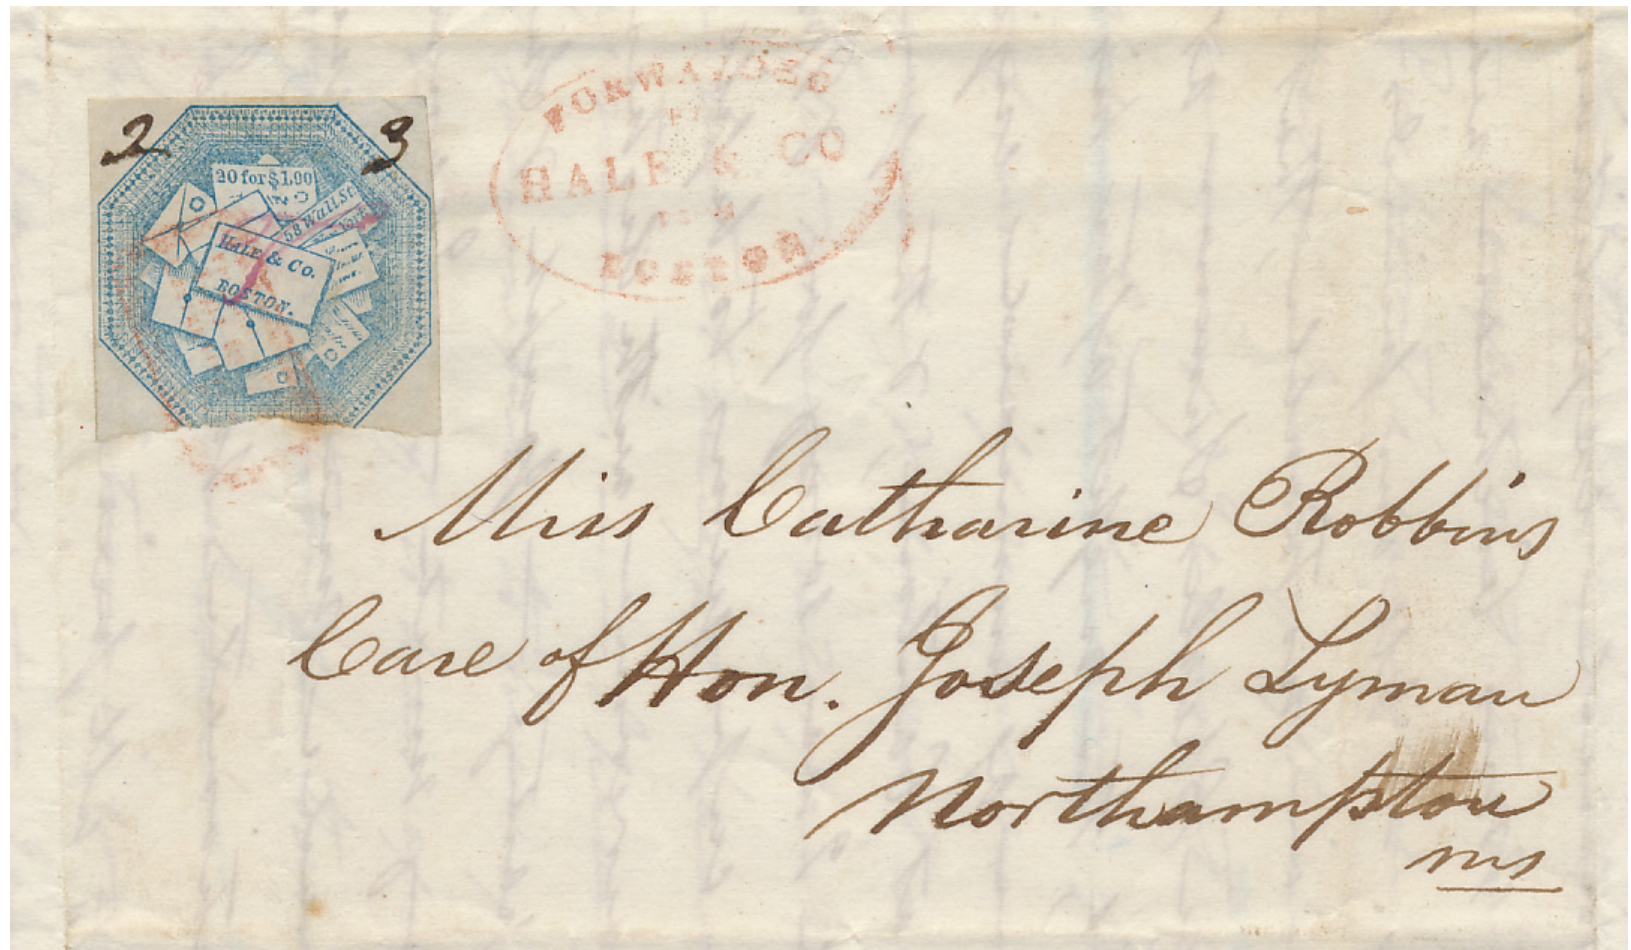 2 3
20 for $1,00
58 Wall St.
HALE & Co.
BOSTON.
FORWARDED
BY
HALE & CO
FROM
BOSTON
Miss Catharine Robbins
Care of Hon. Joseph Lyman
Northampton
ms